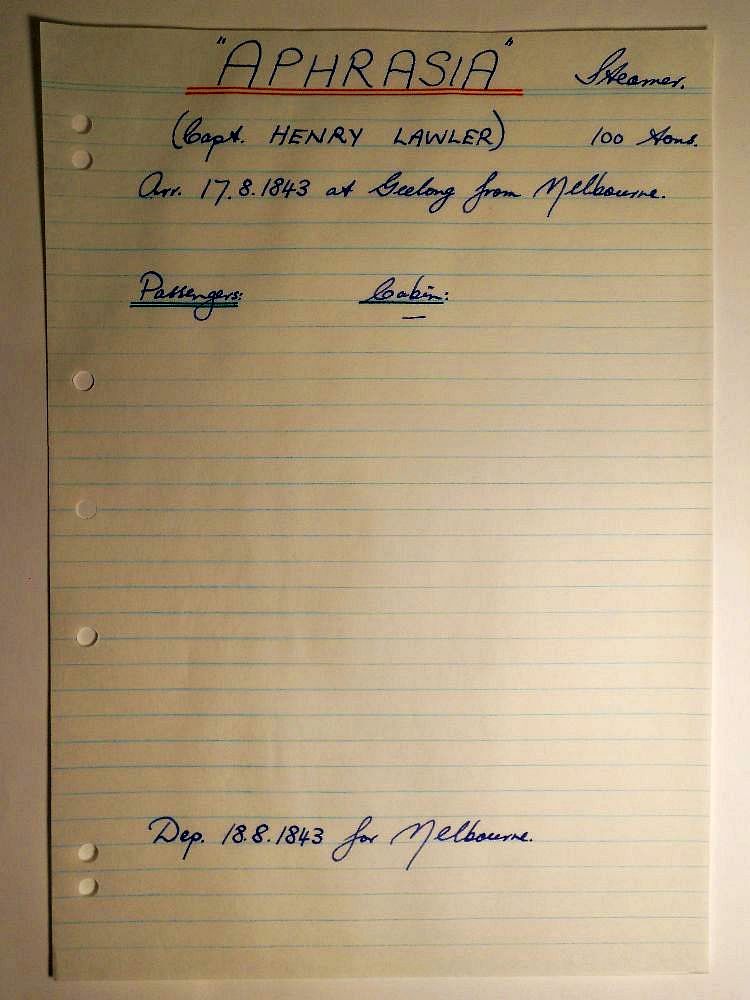 "APHRASIA" Steamer.
(Capt. HENRY LAWLER) 100 tons.
Arr. 17.8.1843 at Geelong from Melbourne.
Passengers: Cabin:
—
Dep. 18.8.1843 for Melbourne.